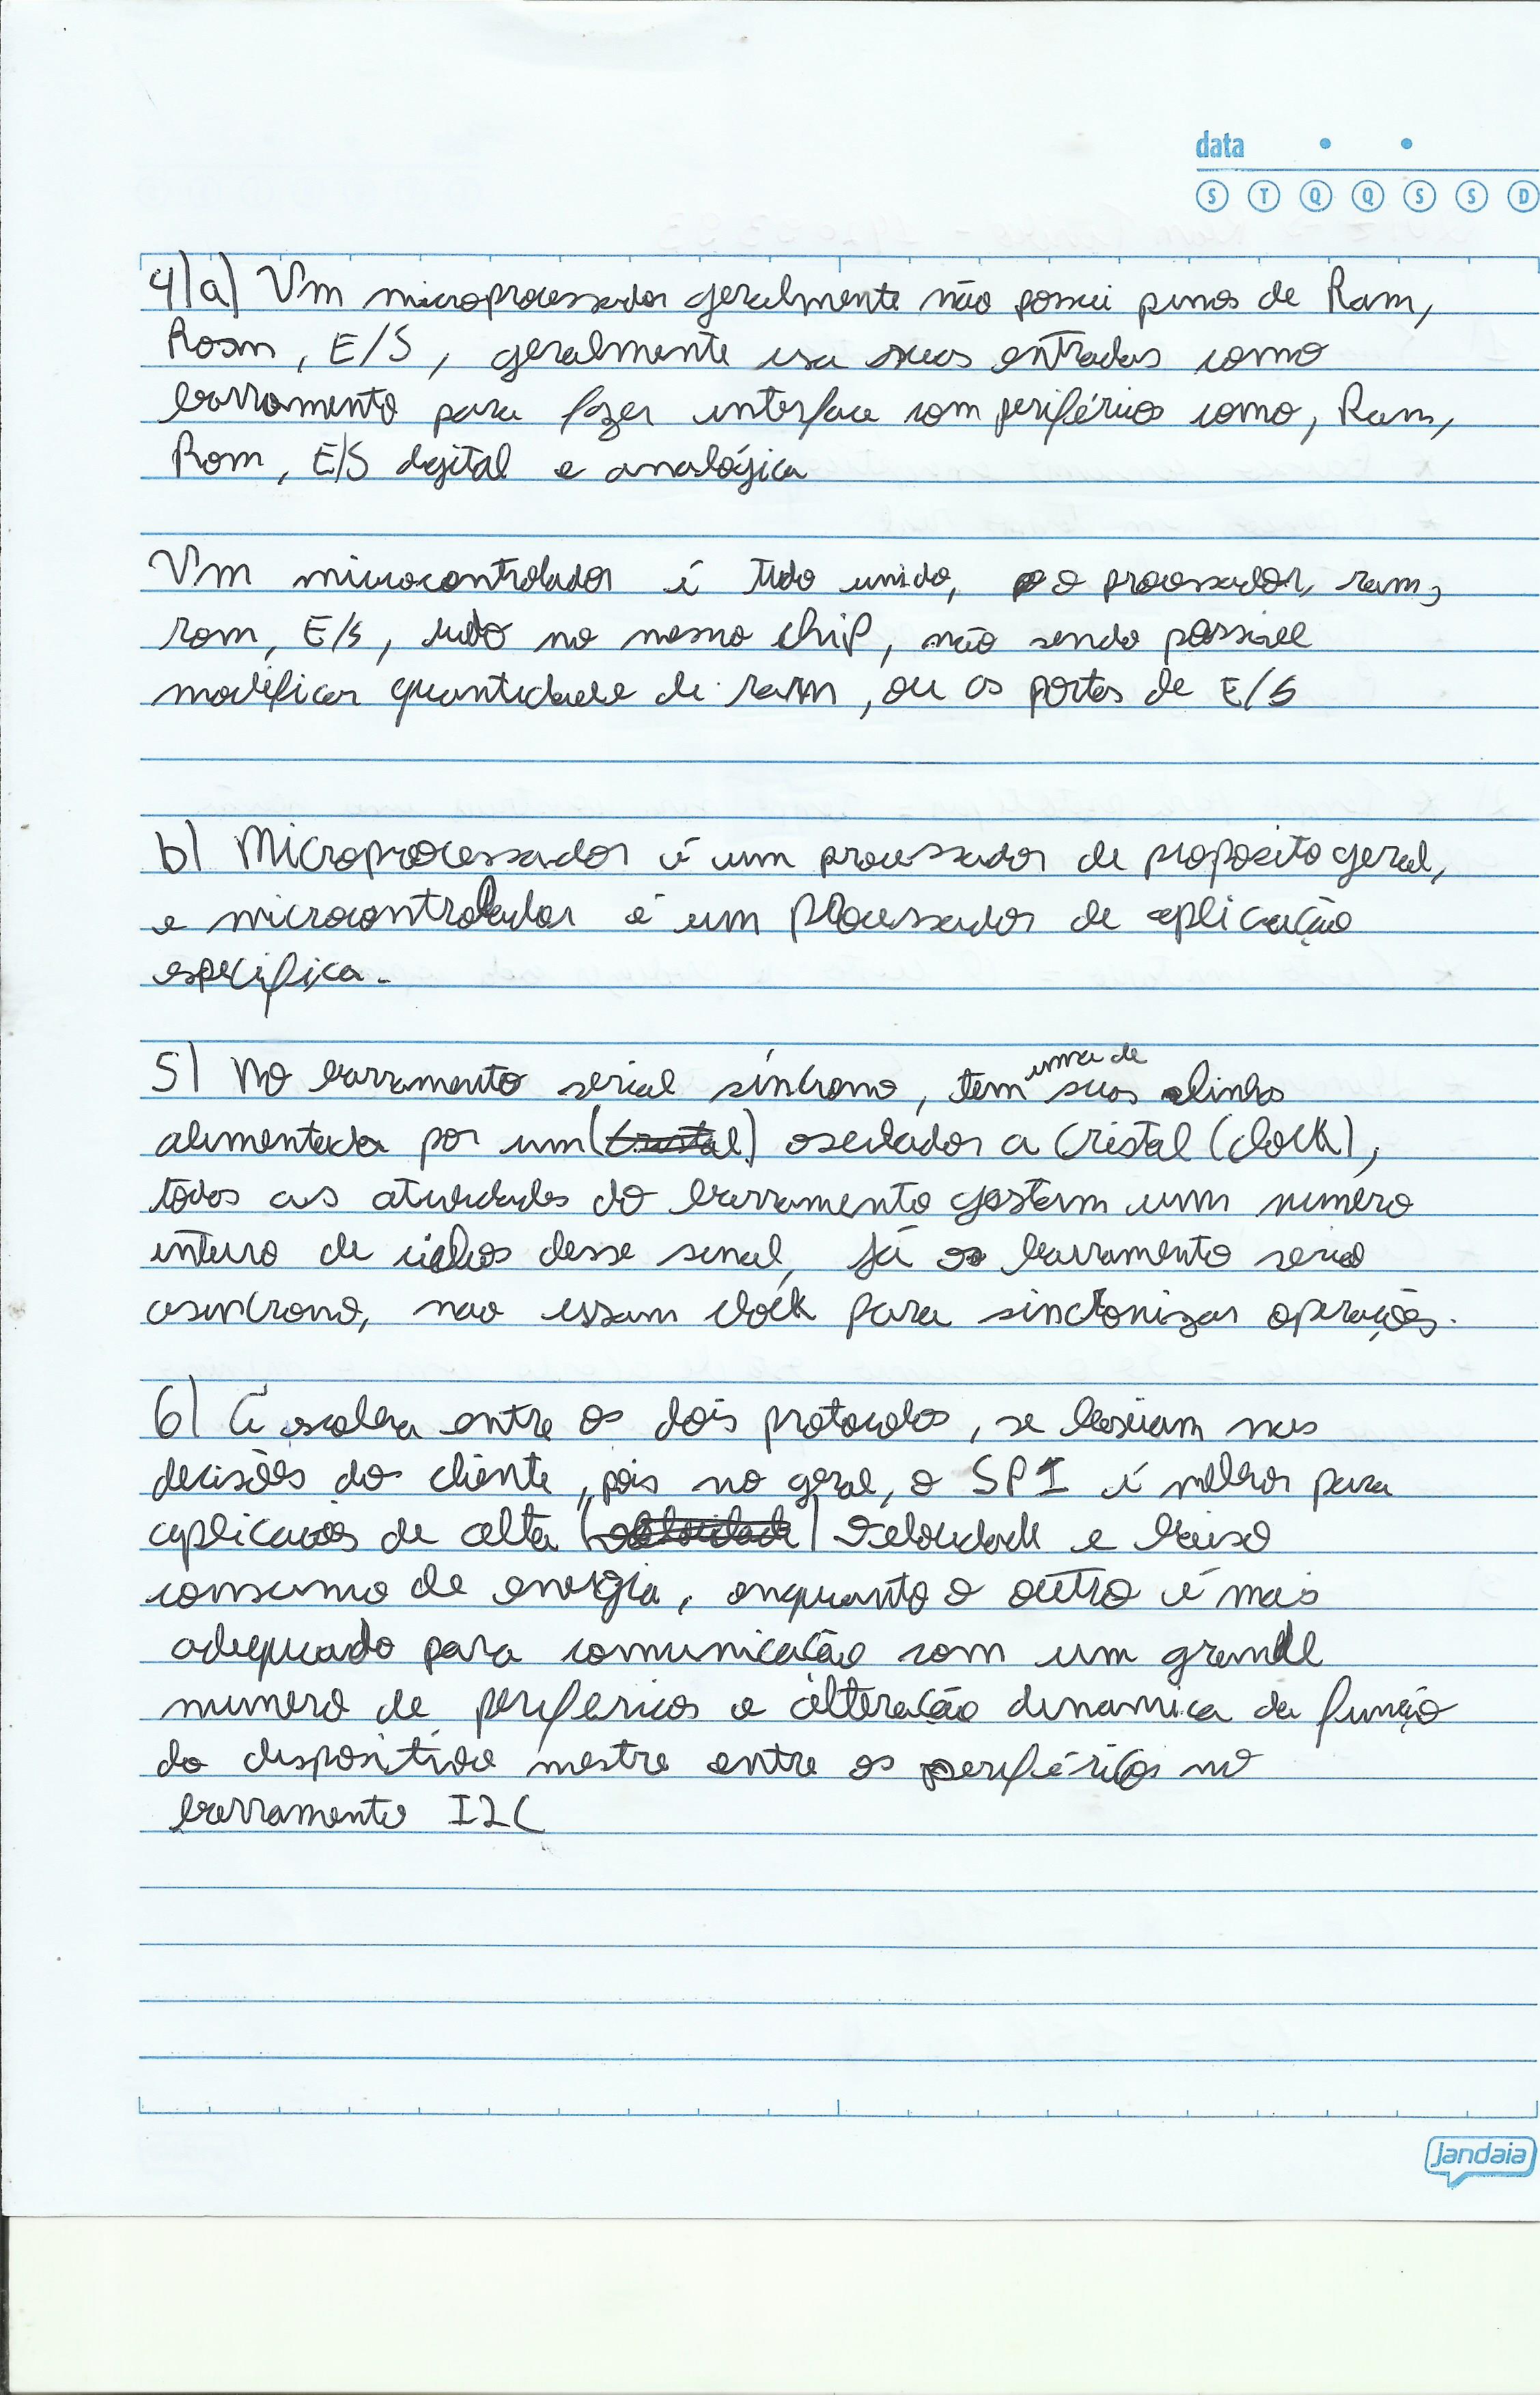 data
S T Q Q S S D
4)a) Um microprocessador geralmente não possui pinos de Ram,
Rom, E/S, geralmente usa suas entradas como
barramento para fazer interface com periférios como, Ram,
Rom, E/S digital e analógica
Um microcontrolador é tudo unido, o processador, ram,
rom, E/S, tudo no mesmo chip, não sendo possivel
modificar quantidade de ram, ou as portas de E/S
b) Microprocessador é um processador de proposito geral,
e microcontrolador é um processador de aplicação
especifica.
5) No barramento serial síncrono, tem uma de suas linhas
alimentada por um (cristal) oscilador a cristal (clock),
todas as atividades do barramento gastam um numero
inteiro de ciclos desse sinal, já o barramento serial
asincrono, nao ussam clock para sincronizar operações.
6) A escolha entre os dois protocolos, se baseiam nas
decisões do cliente, pois no geral, o SPI é melhor para
aplicações de alta (velocidade) velocidade e baixo
consumo de energia, enquanto o outro é mais
adequado para comunicação com um grande
numero de perifericos e alteração dinamica da função
do dispositivo mestre entre os periféricos no
barramento I2C
Jandaia